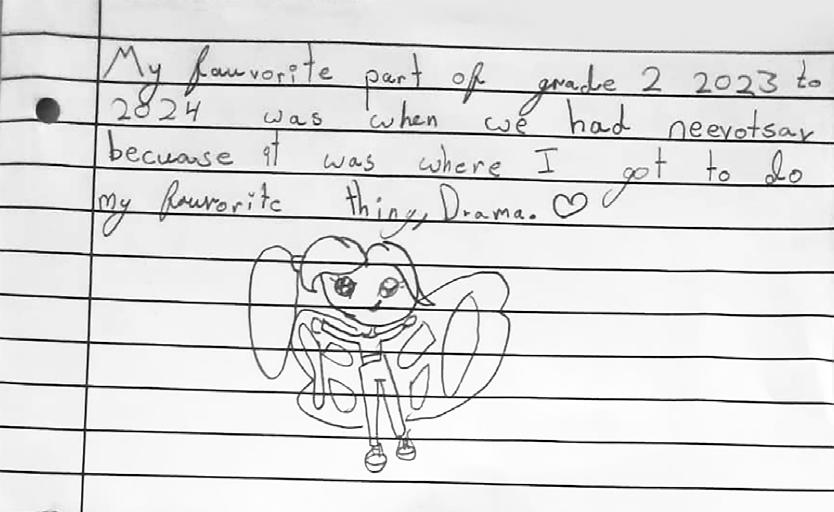 My fauvorite part of grade 2 2023 to
2024 was when we had neevotsav
becuase it was where I got to do
my fauvorite thing, Drama. ♡